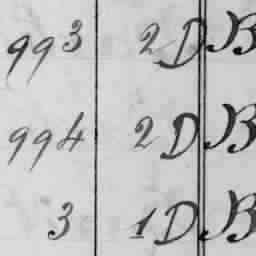 993 2D B
994 2D B
3 1D B